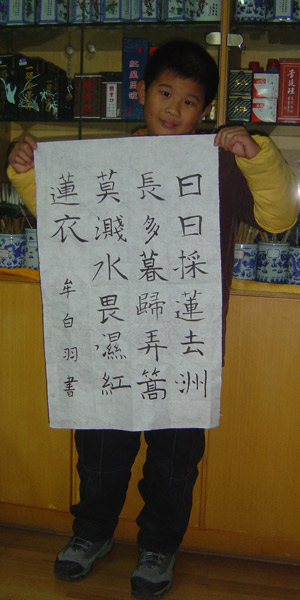 日日採蓮去洲
長多暮歸弄篙
莫濺水畏濕紅
蓮衣
牟白羽書